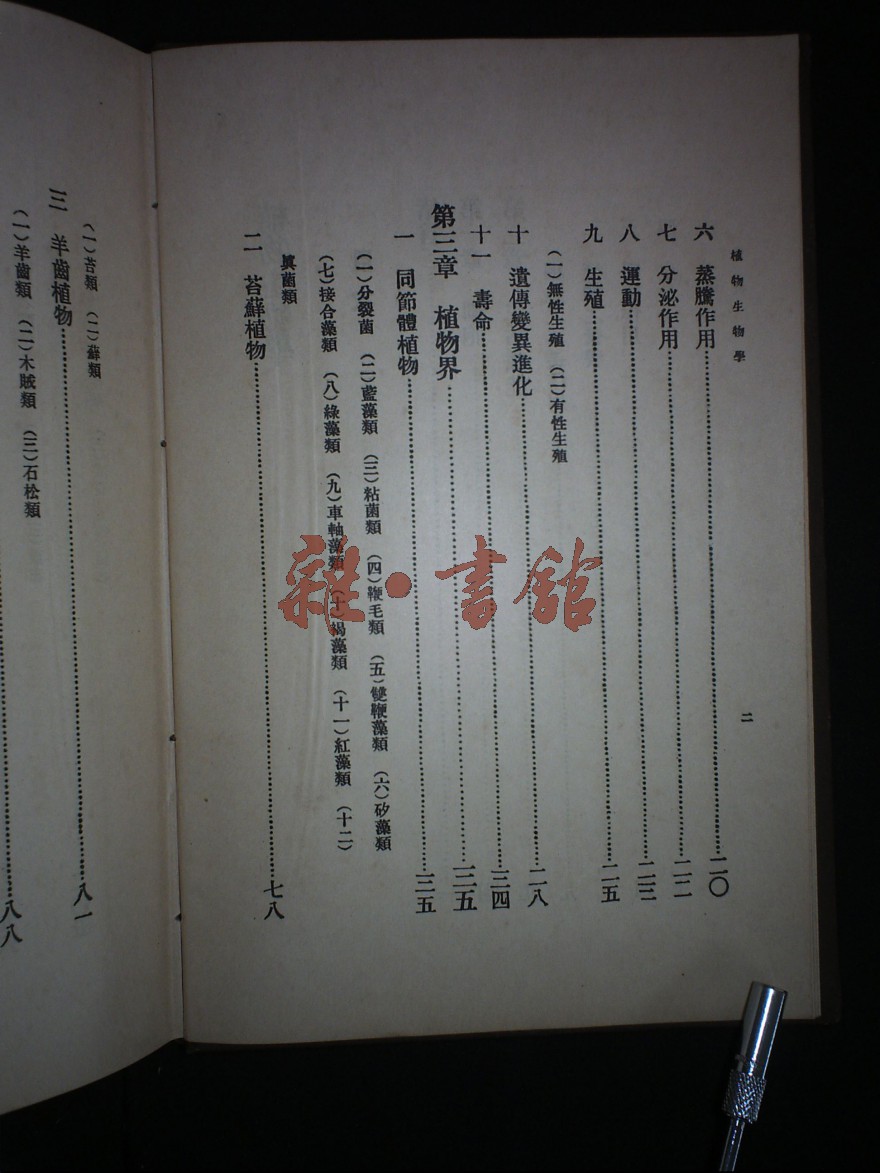 植物生物學
二
六　蒸騰作用……二〇
七　分泌作用……二二
八　運動……二三
九　生殖……二五
（一）無性生殖　（二）有性生殖
十　遺傳變異進化……二八
十一　壽命……三四
第三章　植物界……三五
一　同節體植物……三五
（一）分裂菌　（二）藍藻類　（三）粘菌類　（四）鞭毛類　（五）雙鞭藻類　（六）矽藻類
（七）接合藻類　（八）綠藻類　（九）車軸藻類　（十）褐藻類　（十一）紅藻類　（十二）
眞菌類
二　苔蘚植物……七八
（一）苔類　（二）蘚類
三　羊齒植物……八一
（一）羊齒類　（二）木賊類　（三）石松類
八八
雜·書館